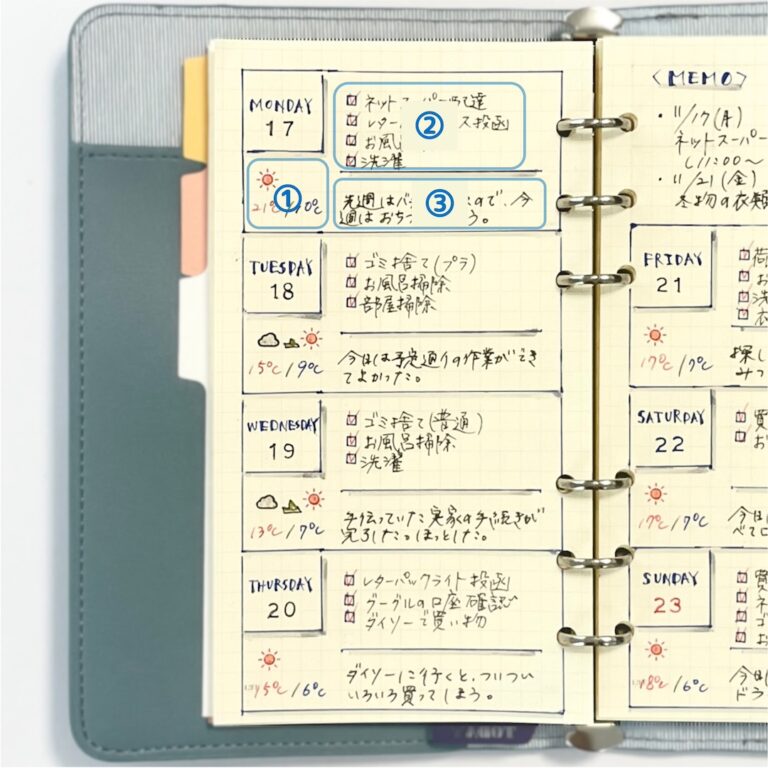 MONDAY
17
☑ ネットスーパー
☑ レター ス投函
☑ お風
☑ 洗濯
①
②
③
21℃/10℃
先週は ので、今
週はおち う。
TUESDAY
18
☑ ゴミ捨て(プラ)
☑ お風呂掃除
☑ 部屋掃除
15℃/9℃
今日は予定通りの作業ができ
てよかった。
WEDNESDAY
19
☑ ゴミ捨て(普通)
☑ お風呂掃除
☑ 洗濯
13℃/7℃
手伝っていた実家の手続きが
完了した。ほっとした。
THURSDAY
20
☑ レターパックライト投函
☑ グーグルの口座確認
☑ ダイソーで買い物
15℃/6℃
ダイソーに行くと、ついつい
いろいろ買ってしまう。
<MEMO>
・11/17(月)
ネットスーパー
11:00〜
・11/21(金)
冬物の衣類
FRIDAY
21
☑ 荷
☑ お
☑ 洗
☑ 衣
17℃/7℃
探し
みつ
SATURDAY
22
☑ 買
☑ お
17℃/7℃
今日
べて
SUNDAY
23
☑ 買
☑ ネ
☑ ゴ
☑ お
18℃/6℃
今日
ドラ